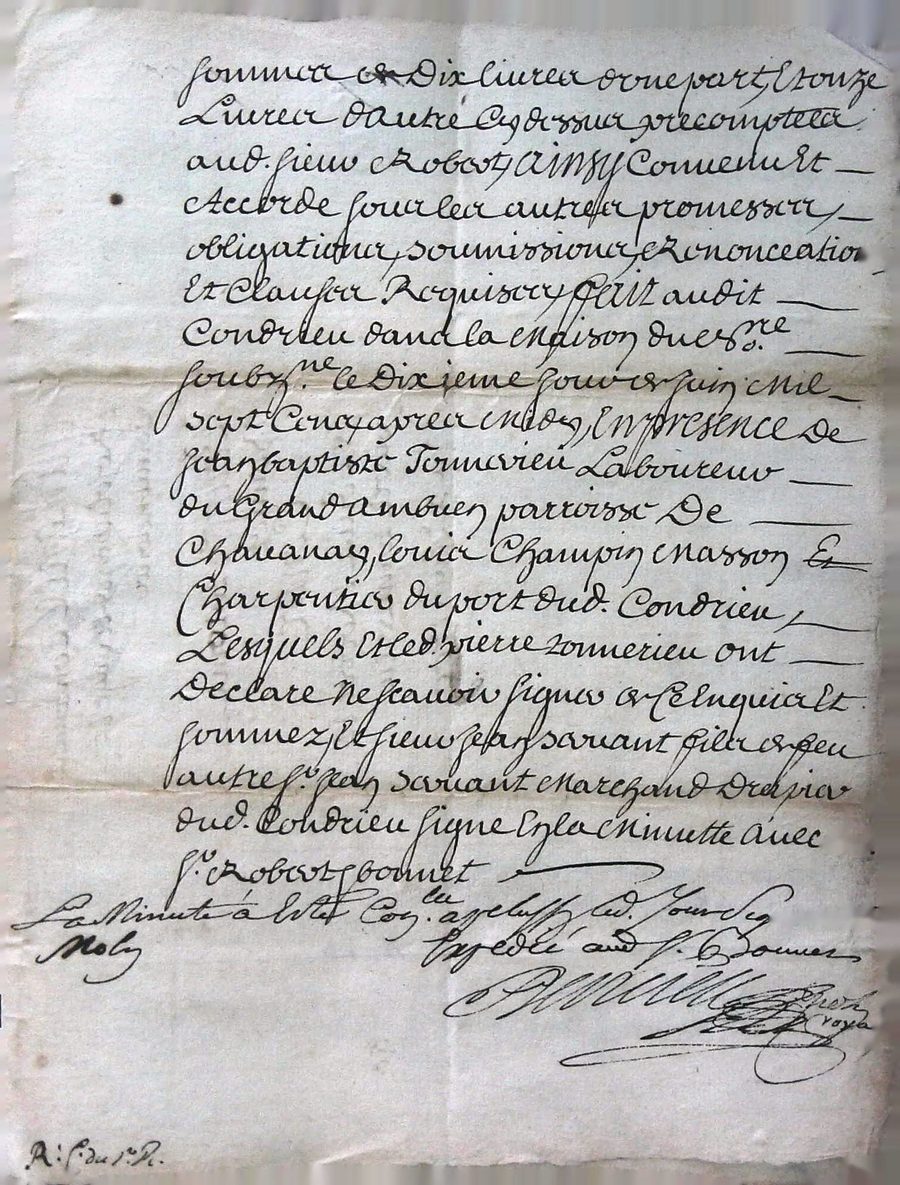 sommes de Dix livres d'une part, Et onze
Livres d'autre Cy dessus precomptees
aud. sieur Robert, Ainsy Convenu Et
Accorde sous les autres promesses,
obligations, soumissions, Renonceation
Et Clauses Requises, fait audit
Condrieu dans la Maison du no.re
soubz.ne le Dixieme jour de juin Mil
sept Cens, apres Midy, En presence De
Jean baptiste Tonnerieu Laboureur
du Grand Ambuen parroisse De
Chavanay, louis Champin Masson Et
Charpentier du port dud. Condrieu,
Lesquels Et led. pierre tonnerieu ont
Declare ne scavoir signer de Ce Enquis Et
sommez, Et sieur Jean servant fils de feu
autre s.r Jean servant Marchand Drapier
dud. Condrieu signe En la Minutte Avec
s.r Robert, bonnet
La Minute à Esté Con.lee led. Jour
Expedié aud. S.r Bonnet
R.